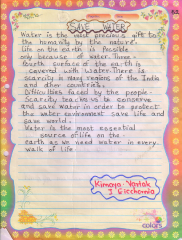 SAVE WATER
Water is the most precious gift to
the humanity by the nature.
Life on the earth is Possible
only because of water. Three -
fourth surface of the earth is
covered with water. There is
scarcity in many regions of the India
and other countries.
Difficulties faced by the people -
Scarcity teaches to conserve
and save water in order to protect
the water environment save life and
save world.
Water is the most essential
source of life on the -
earth as we need water in every
walk of life
colors